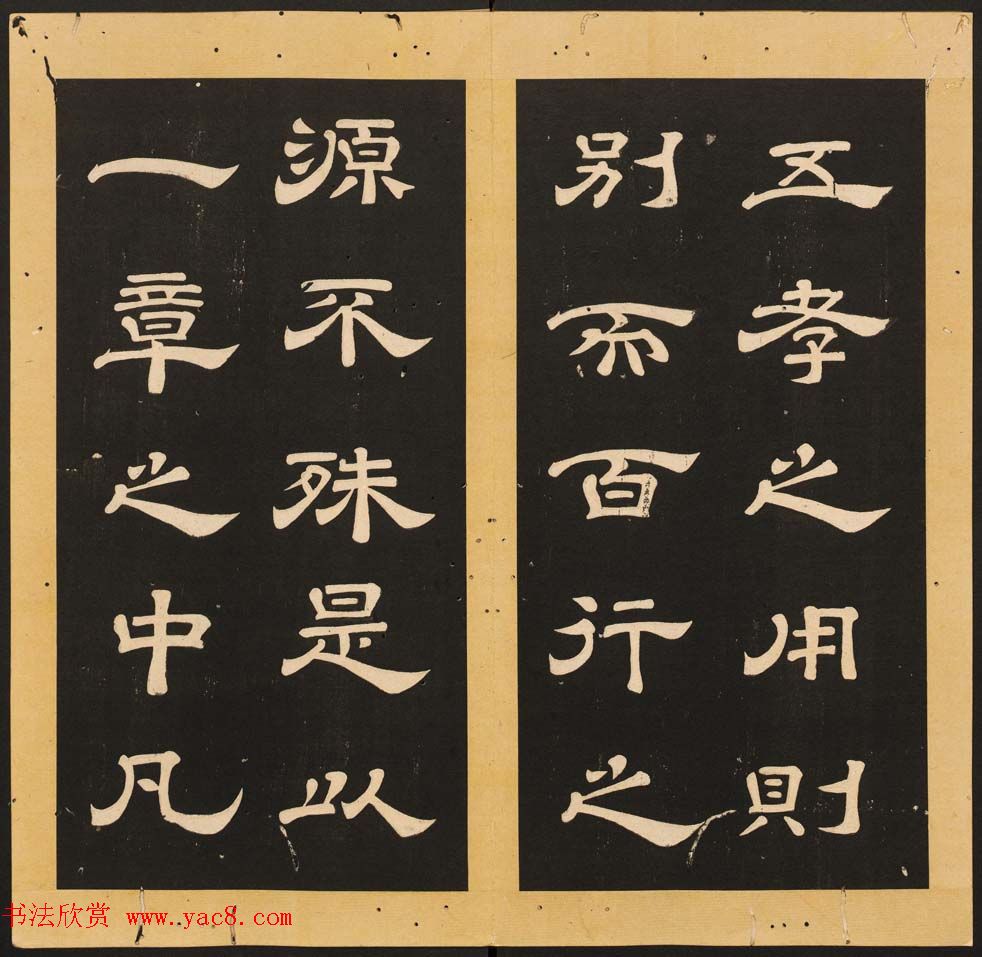 五孝之用則
別而百行之
源不殊是以
一章之中凡
书法欣赏 www.yac8.com